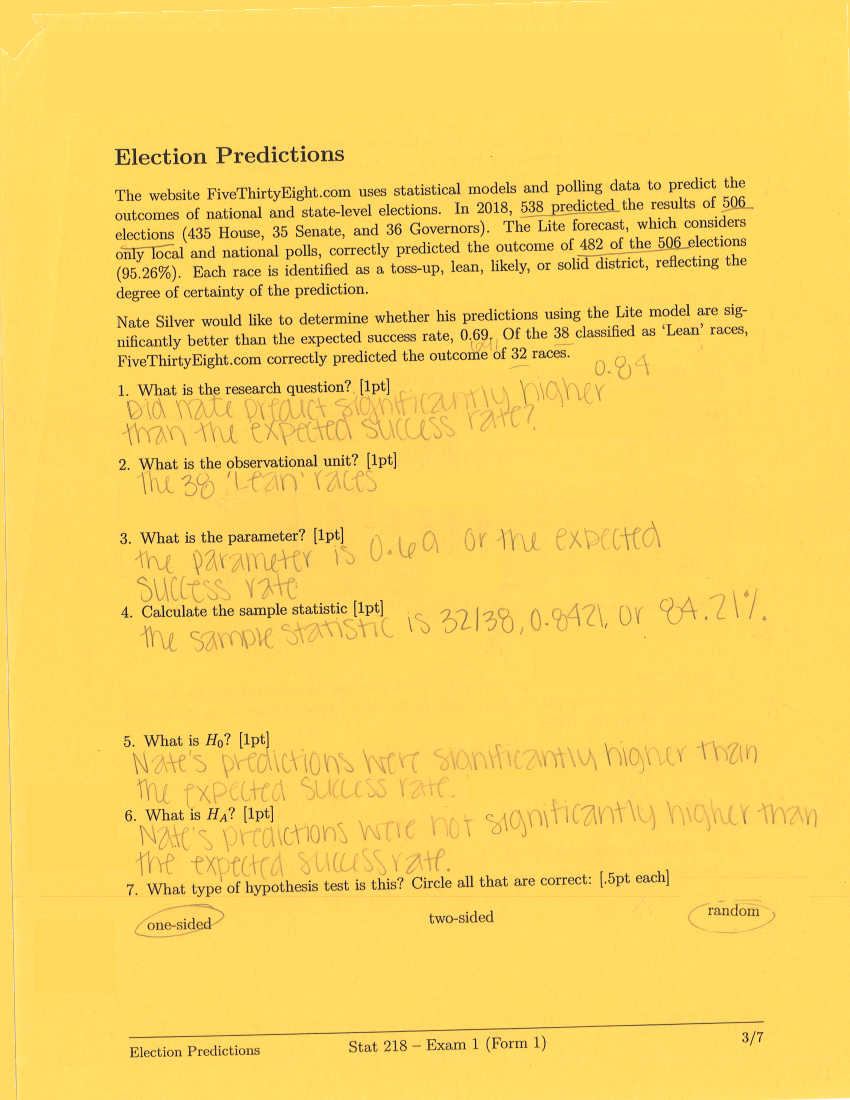 Election Predictions
The website FiveThirtyEight.com uses statistical models and polling data to predict the
outcomes of national and state-level elections. In 2018, 538 predicted the results of 506
elections (435 House, 35 Senate, and 36 Governors). The Lite forecast, which considers
only local and national polls, correctly predicted the outcome of 482 of the 506 elections
(95.26%). Each race is identified as a toss-up, lean, likely, or solid district, reflecting the
degree of certainty of the prediction.
Nate Silver would like to determine whether his predictions using the Lite model are sig-
nificantly better than the expected success rate, 0.69. Of the 38 classified as 'Lean' races,
FiveThirtyEight.com correctly predicted the outcome of 32 races.
0.84
1. What is the research question? [1pt]
Did nate predict significantly higher
than the expected success rate?
2. What is the observational unit? [1pt]
the 38 'Lean' races
3. What is the parameter? [1pt]
the parameter is 0.69 or the expected
success rate
4. Calculate the sample statistic [1pt]
the sample statistic is 32/38, 0.8421, or 84.21%.
5. What is H0? [1pt]
Nate's predictions were significantly higher than
the expected success rate.
6. What is HA? [1pt]
Nate's predictions were not significantly higher than
the expected success rate.
7. What type of hypothesis test is this? Circle all that are correct: [.5pt each]
one-sided two-sided random
Election Predictions Stat 218 – Exam 1 (Form 1) 3/7